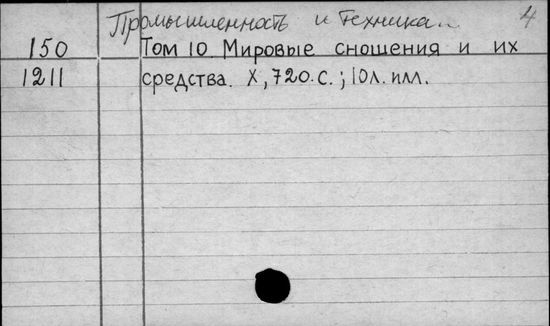 Промышленность и техника.. 4
150 Том 10 Мировые сношения и их
1211 средства. X, 720. с. ; 10л. илл.